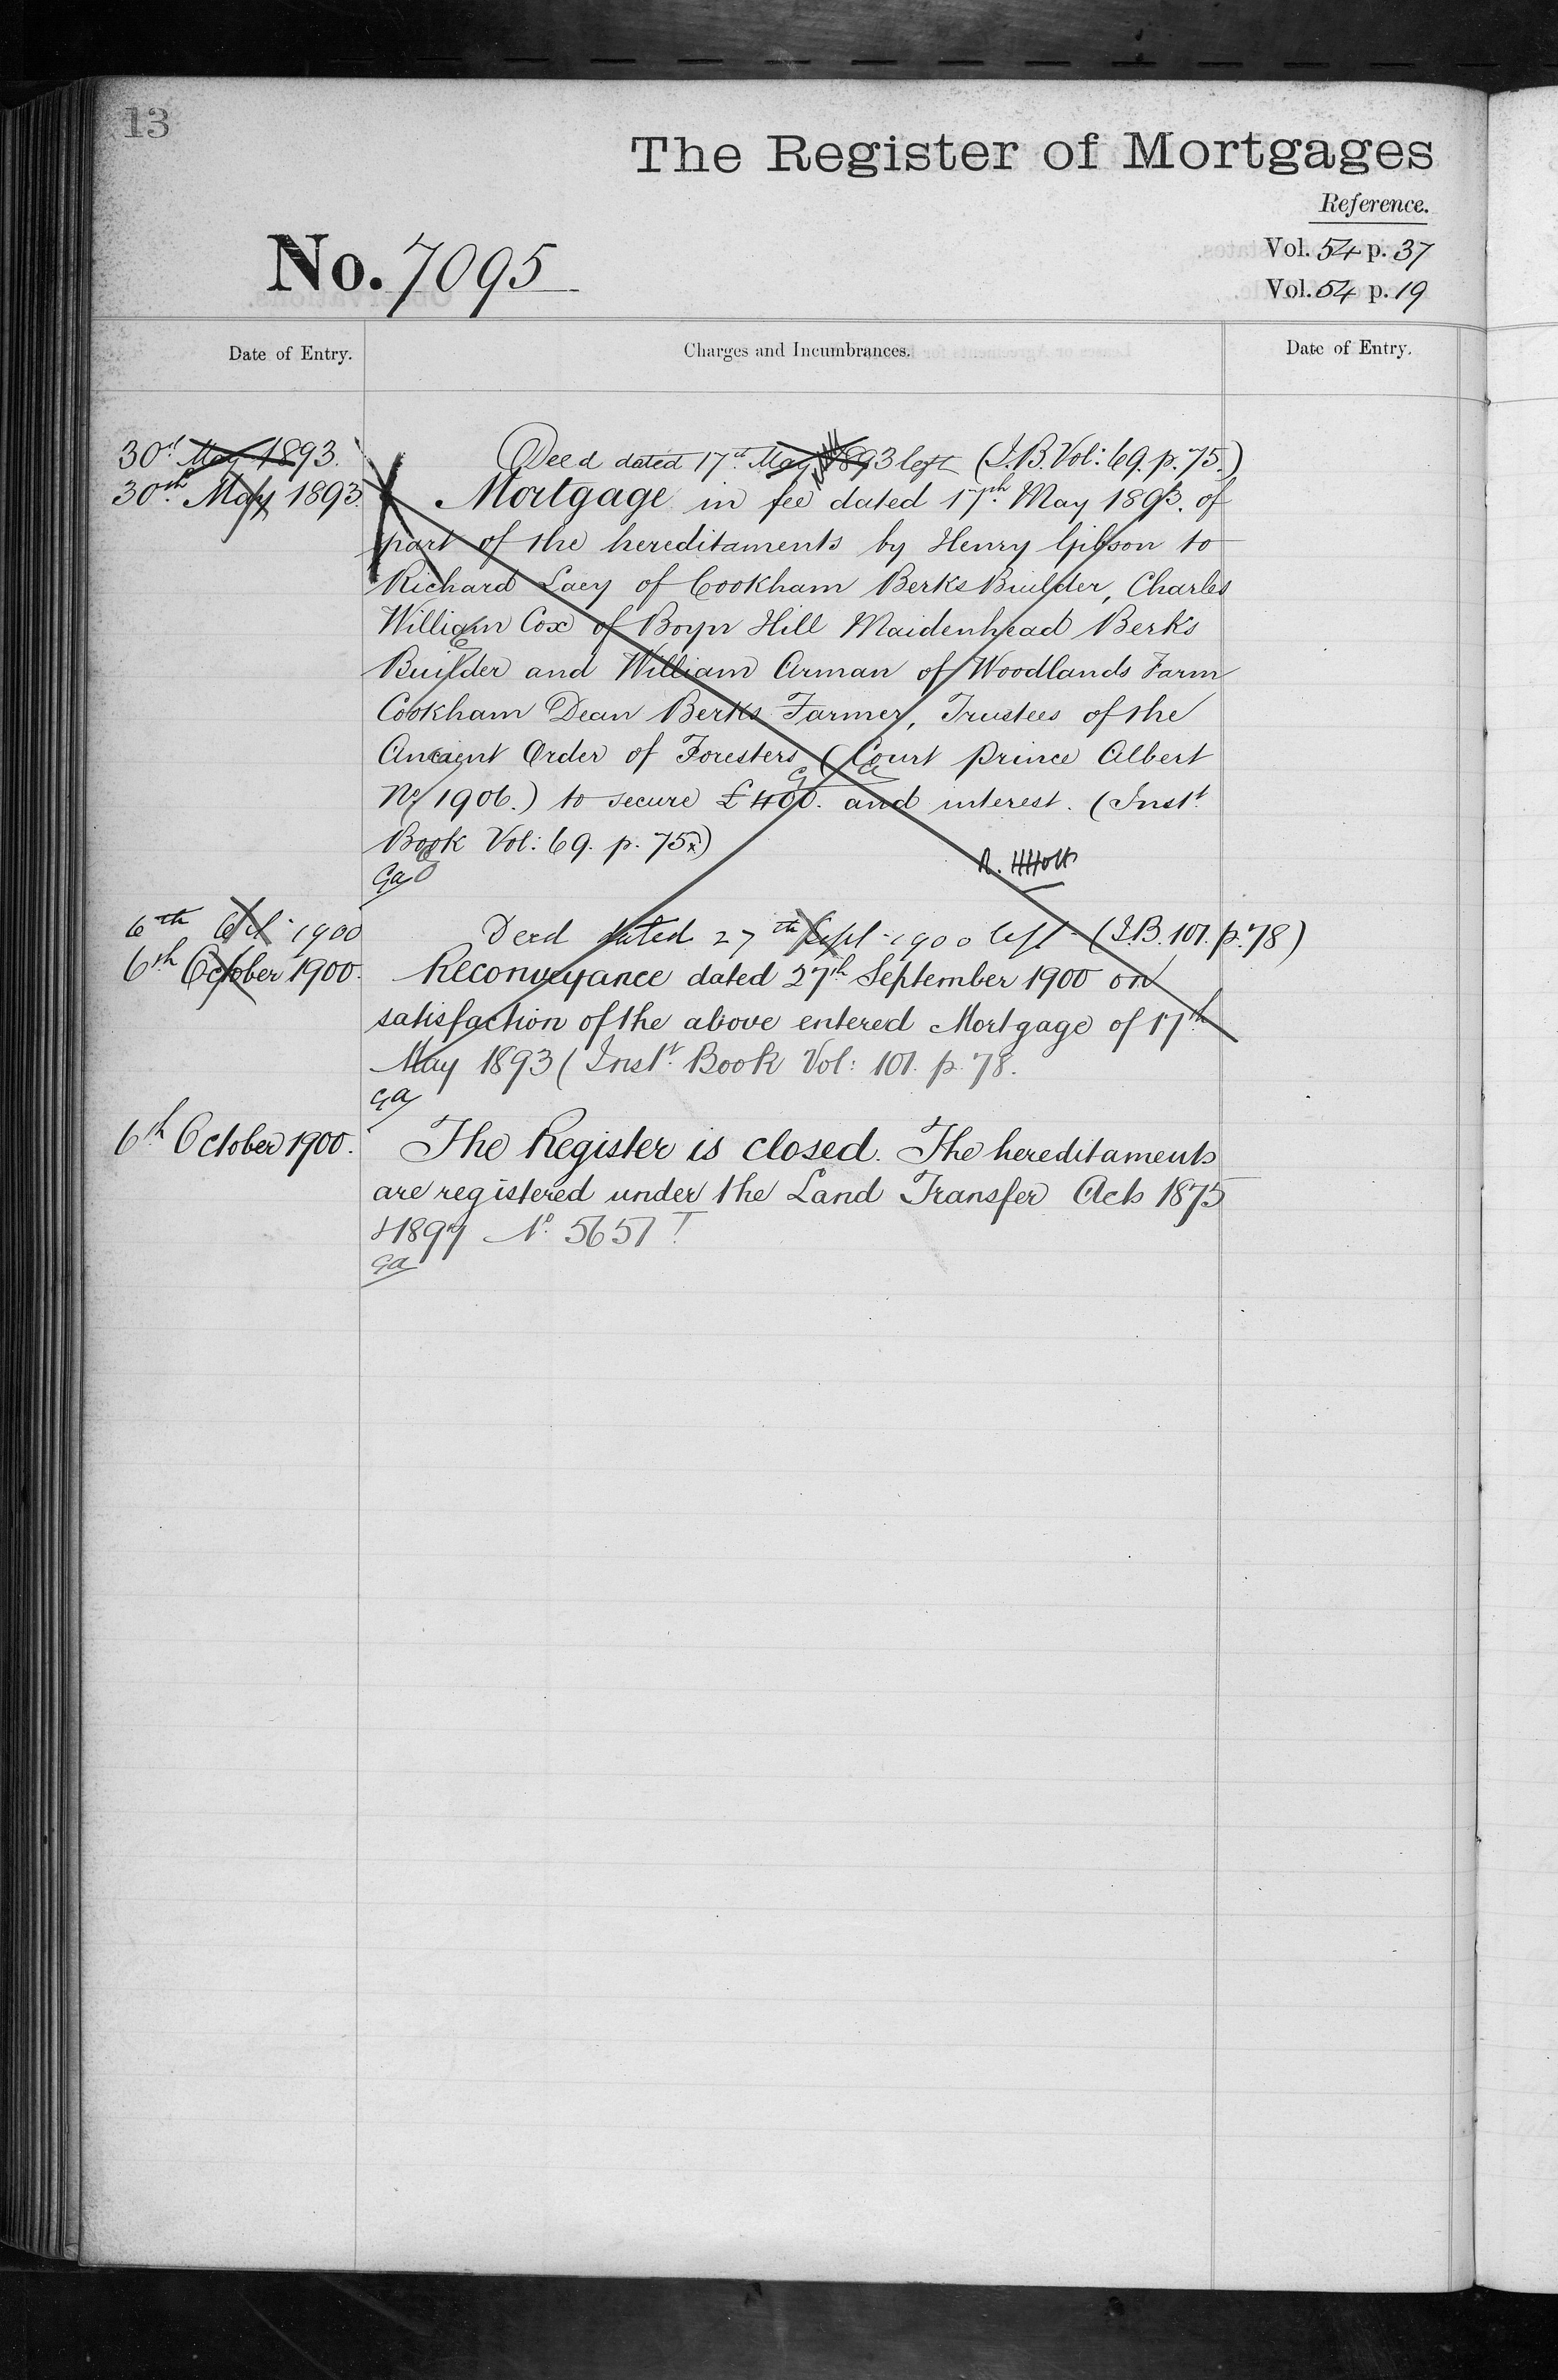 13
The Register of Mortgages
Reference.
No. 7095
Vol. 54 p. 37
Vol. 54 p. 19
Date of Entry.
Charges and Incumbrances.
Date of Entry.
30th May 1893.
Deed dated 17th May 1893 left (I.B. Vol: 69. p. 75.)
30th May 1893.
Mortgage in fee dated 17th May 1893. of
part of the hereditaments by Henry Gibson to
Richard Lacy of Cookham Berks Builder, Charles
William Cox of Boyn Hill Maidenhead Berks
Builder and William Arman of Woodlands Farm
Cookham Dean Berks Farmer, Trustees of the
Ancient Order of Foresters (Court Prince Albert
No 1906.) to secure £400. and interest. (Instt
Book Vol: 69. p. 75x)
Ga
6th Oct 1900
Deed dated 27th Sept 1900 left (I.B. 101. p. 78)
6th October 1900.
Reconveyance dated 27th September 1900 on
satisfaction of the above entered Mortgage of 17th
May 1893 (Instt Book Vol: 101. p. 78.
Ga
6th October 1900.
The Register is closed. The hereditaments
are registered under the Land Transfer Acts 1875
& 1897 No 5651
Ga